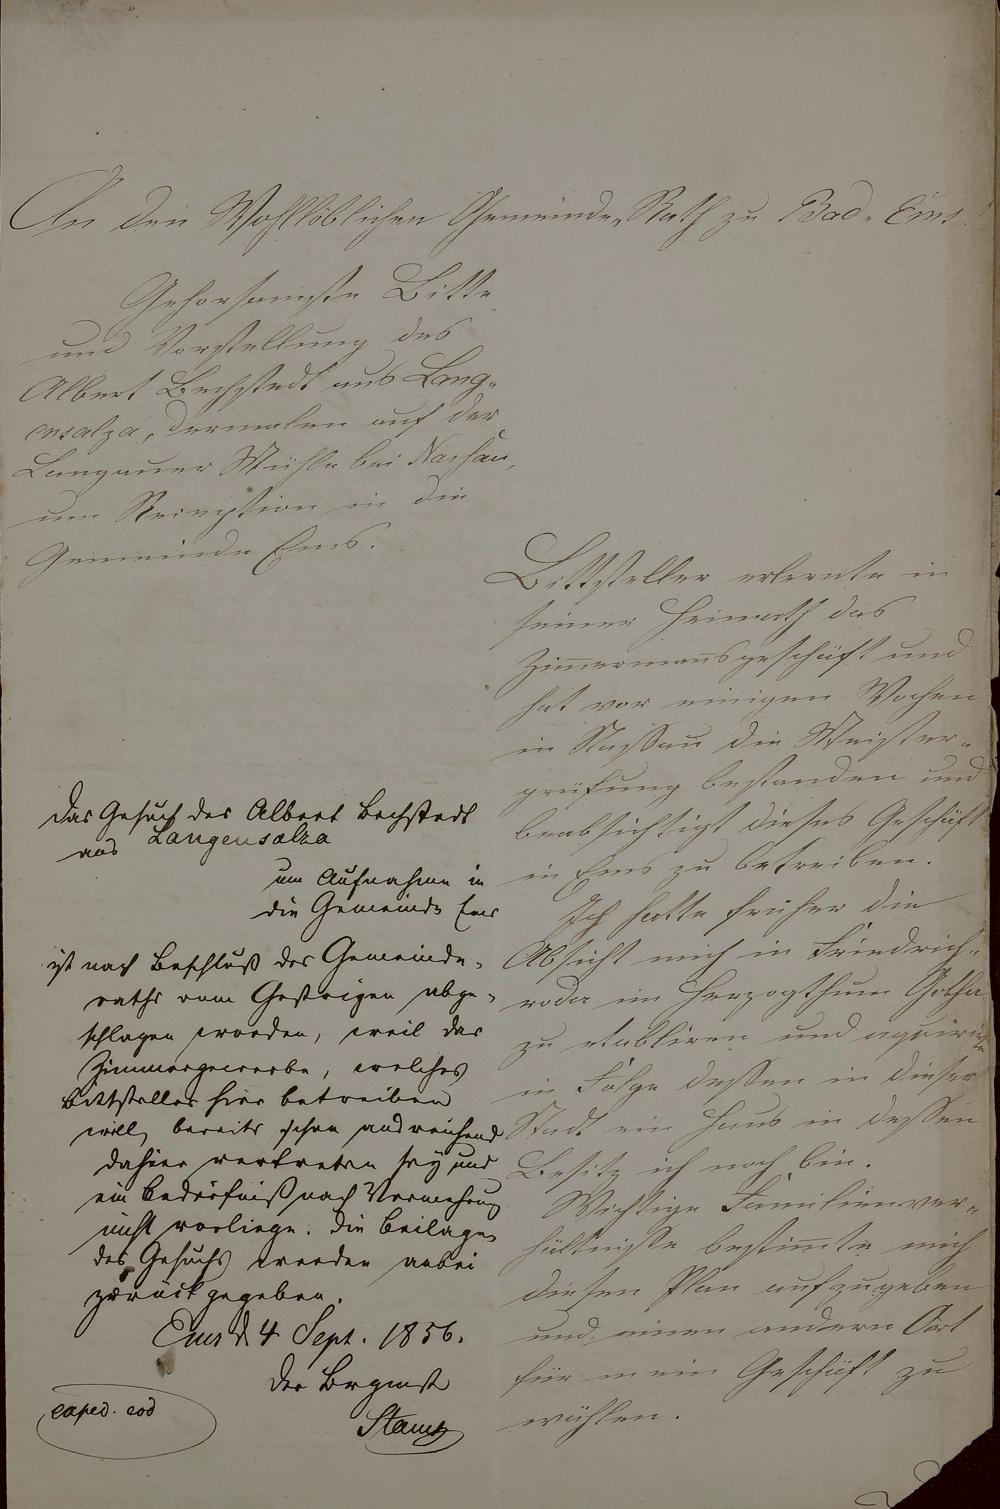 An den Wohllöblichen Gemeinde-Rath zu Bad-Ems.
Gehorsamste Bitte
und Vorstellung des
Albert Bechstedt aus Lang-
ensalza, dermalen auf der
Langauer Mühle bei Nassau,
um Reception in die
Gemeinde Ems.
Bittsteller erlernte in
seiner Heimath das
Zimermansgeschäft und
hat vor einigen Wochen
in Nassau die Meister-
prüfung bestanden und
beabsichtigt dieses Geschäft
in Ems zu betreiben.
Ich hatte früher die
Absicht mich in Friedrich-
roda im Herzogthum Gotha
zu etabliren und aquirirte
in Folge dessen in dieser
Stadt ein Haus in dessen
Besitz ich noch bin.
Wichtige Familienver-
hältnisse bestimte mich
diesen Plan aufzugeben
und einen andern Ort
für mein Geschäft zu
wählen.
Das Gesuch des Albert Bechstedt
aus Langensalza
um Aufnahme in
die Gemeinde Ems
ist nach Beschluß des Gemeinde-
raths vom Gestrigen abge-
schlagen worden, weil das
Zimmergewerbe, welches
Bittsteller hier betreiben
will, bereits schon ausreichend
dahier vertreten sey und
ein Bedürfniß nach Vermehrung
nicht vorliege. Die Beilagen
des Gesuchs werden anbei
zurückgegeben.
Ems d 4 Sept. 1856.
Der Brgmst
Stamm
exped. eod